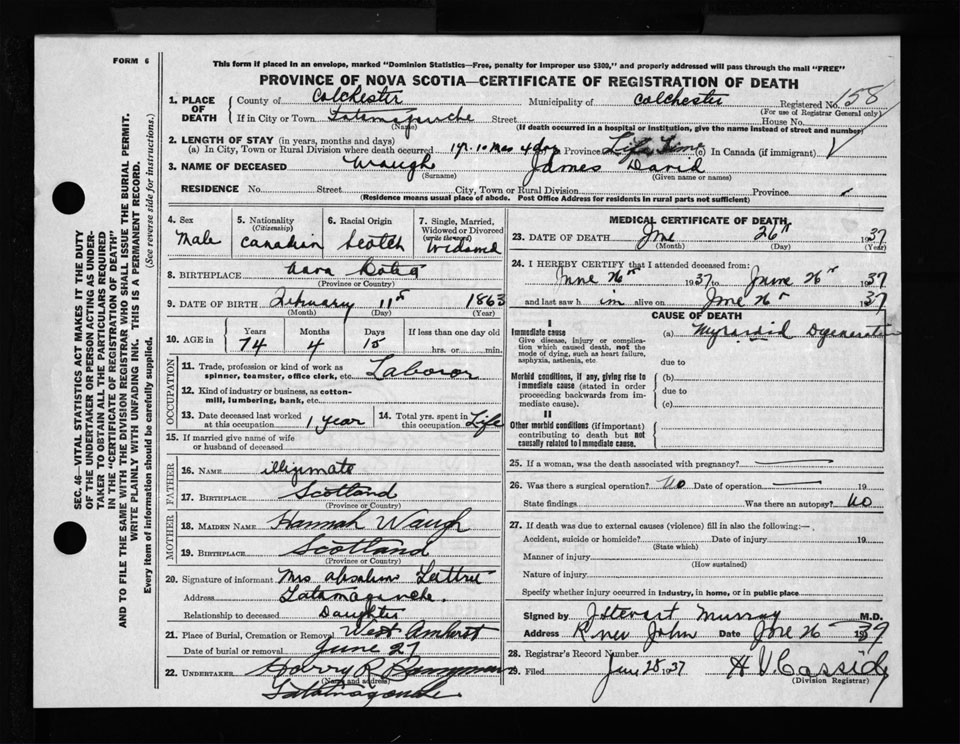 FORM 6
This form if placed in an envelope, marked "Dominion Statistics—Free, penalty for improper use $300," and properly addressed will pass through the mail "FREE"
PROVINCE OF NOVA SCOTIA—CERTIFICATE OF REGISTRATION OF DEATH
1. PLACE OF DEATH County of Colchester Municipality of Colchester Registered No. 158
(For use of Registrar General only)
If in City or Town Tatamagouche Street House No.
(Name) (If death occurred in a hospital or institution, give the name instead of street and number)
2. LENGTH OF STAY (in years, months and days)
(a) In City, Town or Rural Division where death occurred 1 yr. 10 mos 4 dys In Province Life Time (c) In Canada (if immigrant)
3. NAME OF DECEASED Waugh James David
(Surname) (Given name or names)
RESIDENCE No. Street City, Town or Rural Division Province
(Residence means usual place of abode. Post Office Address for residents in rural parts not sufficient)
4. Sex 5. Nationality (Citizenship) 6. Racial Origin 7. Single, Married, Widowed or Divorced (write the word)
Male Canadian Scotch Widowed
8. BIRTHPLACE Nova Scotia
(Province or Country)
9. DATE OF BIRTH February 11 1863
(Month) (Day) (Year)
10. AGE in Years Months Days If less than one day old
74 4 15 hrs. or min.
OCCUPATION
11. Trade, profession or kind of work as spinner, teamster, office clerk, etc. Laboror
12. Kind of industry or business, as cotton-mill, lumbering, bank, etc.
13. Date deceased last worked at this occupation 1 year 14. Total yrs. spent in this occupation Life
15. If married give name of wife or husband of deceased
FATHER
16. NAME
17. BIRTHPLACE Scotland
(Province or Country)
MOTHER
18. MAIDEN NAME Hannah Waugh
19. BIRTHPLACE Scotland
(Province or Country)
20. Signature of informant Mrs
Address Tatamagouche.
Relationship to deceased Daughter
21. Place of Burial, Cremation or Removal West Amherst
Date of burial or removal June 27
22. UNDERTAKER Harry R.
(Name and address)
Tatamagouche
MEDICAL CERTIFICATE OF DEATH.
23. DATE OF DEATH June 26th 1937
(Month) (Day) (Year)
24. I HEREBY CERTIFY that I attended deceased from:
June 26th 1937 to June 26th 1937
and last saw him alive on June 26 1937
CAUSE OF DEATH
I
Immediate cause (a)
Give disease, injury or complication which caused death, not the mode of dying, such as heart failure, asphyxia, asthenia, etc.
due to
Morbid conditions, if any, giving rise to immediate cause (stated in order proceeding backwards from immediate cause). (b)
due to
(c)
II
Other morbid conditions (if important) contributing to death but not causally related to immediate cause.
25. If a woman, was the death associated with pregnancy?
26. Was there a surgical operation? No Date of operation 19
State findings Was there an autopsy? No
27. If death was due to external causes (violence) fill in also the following:—
Accident, suicide or homicide? Date of injury 19
(State which)
Manner of injury
(How sustained)
Nature of injury
Specify whether injury occurred in industry, in home, or in public place
Signed by Murray M.D.
Address River John Date June 26
28. Registrar's Record Number
29. Filed June 28 1937 H V Cassidy
(Division Registrar)
SEC. 46—VITAL STATISTICS ACT MAKES IT THE DUTY
OF THE UNDERTAKER OR PERSON ACTING AS UNDER-
TAKER TO OBTAIN ALL THE PARTICULARS REQUIRED
IN THE "CERTIFICATE OF REGISTRATION OF DEATH"
AND TO FILE THE SAME WITH THE DIVISION REGISTRAR WHO SHALL ISSUE THE BURIAL PERMIT.
WRITE PLAINLY WITH UNFADING INK. THIS IS A PERMANENT RECORD.
Every item of information should be carefully supplied. (See reverse side for instructions.)